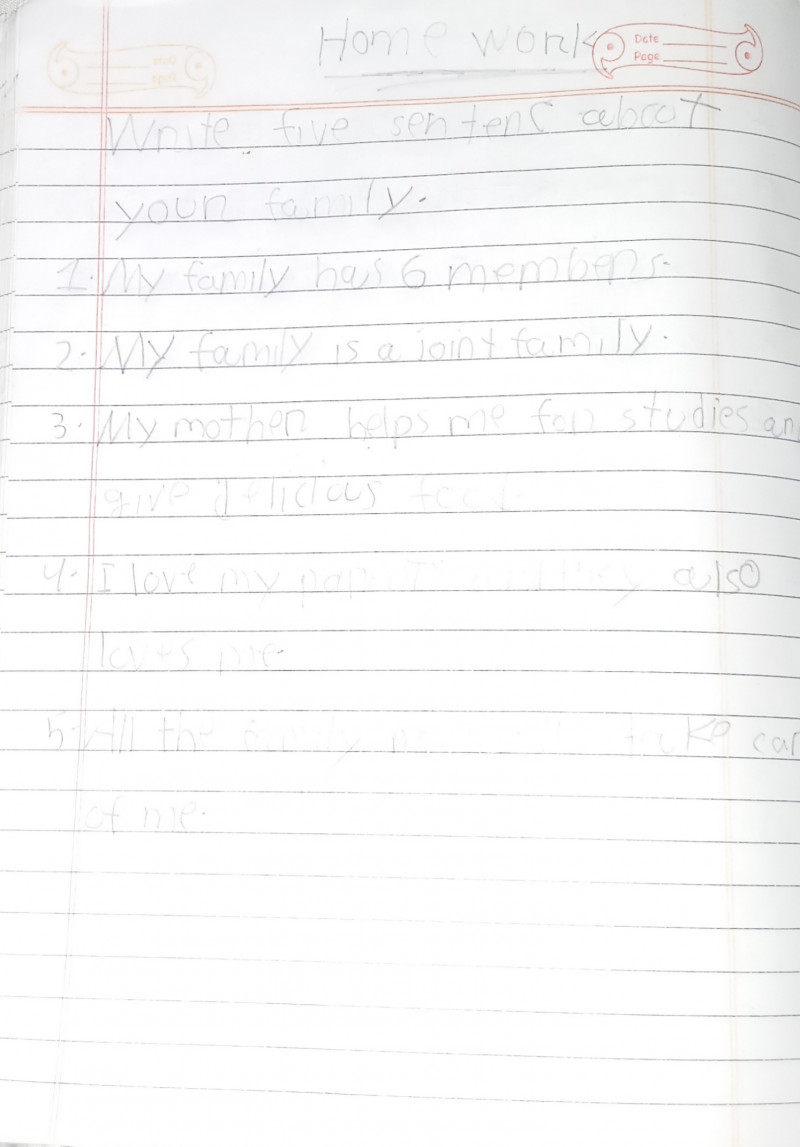 Home work
Date
Page
Write five sentenc about
your family.
1. My family has 6 members.
2. My family is a joint family.
3. My mother helps me for studies an
give delicious food.
4. I love my they also
loves me.
5. All the family take car
of me.